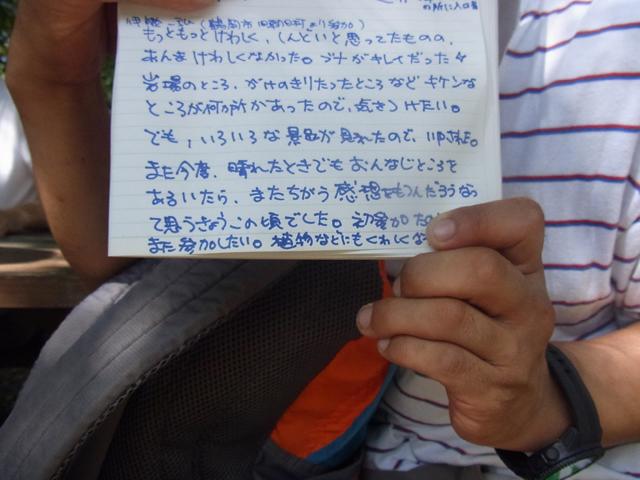 の所に入口着
(鶴岡市 旧朝日村より参加)
もっともっとけわしく、しんどいと思ってたものの、
あんまけわしくなかった。ブナがキレイだった
岩場のところ、がけのきりたったところなどキケンな
ところが何か所かあったので、気をつけたい。
でも、いろいろな景色が見れたので、いやされた。
また今度、晴れたときでもおんなじところを
あるいたら、またちがう感想をもつんだろうなっ
て思うきょうこの頃でした。初参加
また参加したい。植物などにもくわしくな